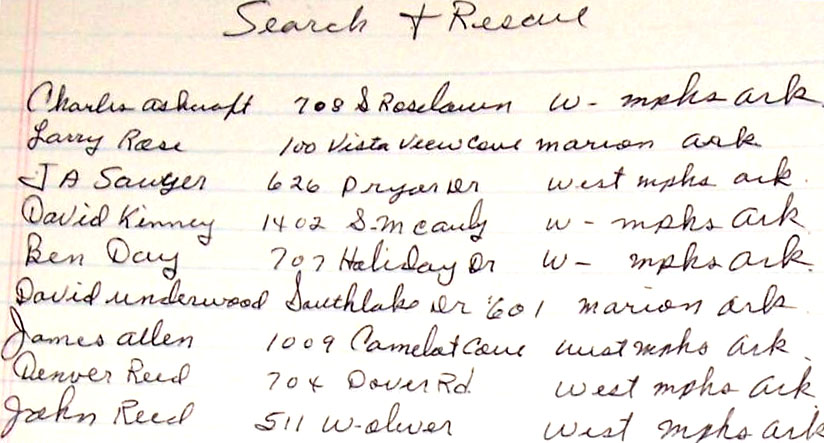 Search + Rescue
Charles Ashcraft 708 S Roselawn W - mphs Ark.
Larry Rose 100 Vista View Cove marion ark
J A Sawyer 626 Pryor Dr West mphs ark.
David Kinney 1402 S. McAuly W - mphs Ark
Ben Day 707 Haliday Dr W - mphs Ark.
David underwood Southlake Dr 601 marion ark.
James allen 1009 Camelot Cove West mphs Ark.
Denver Reed 704 Dover Rd. West mphs Ark.
John Reed 511 W-oliver West mphs Ark